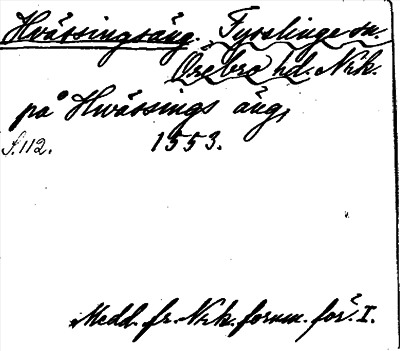 Hvärsingsäng. Tysslinge sn.
Örebro hd. Nrk.
på Hwärsings äng,
S. 112. 1553.
Medd. fr. Nrk. fornm. för. I.